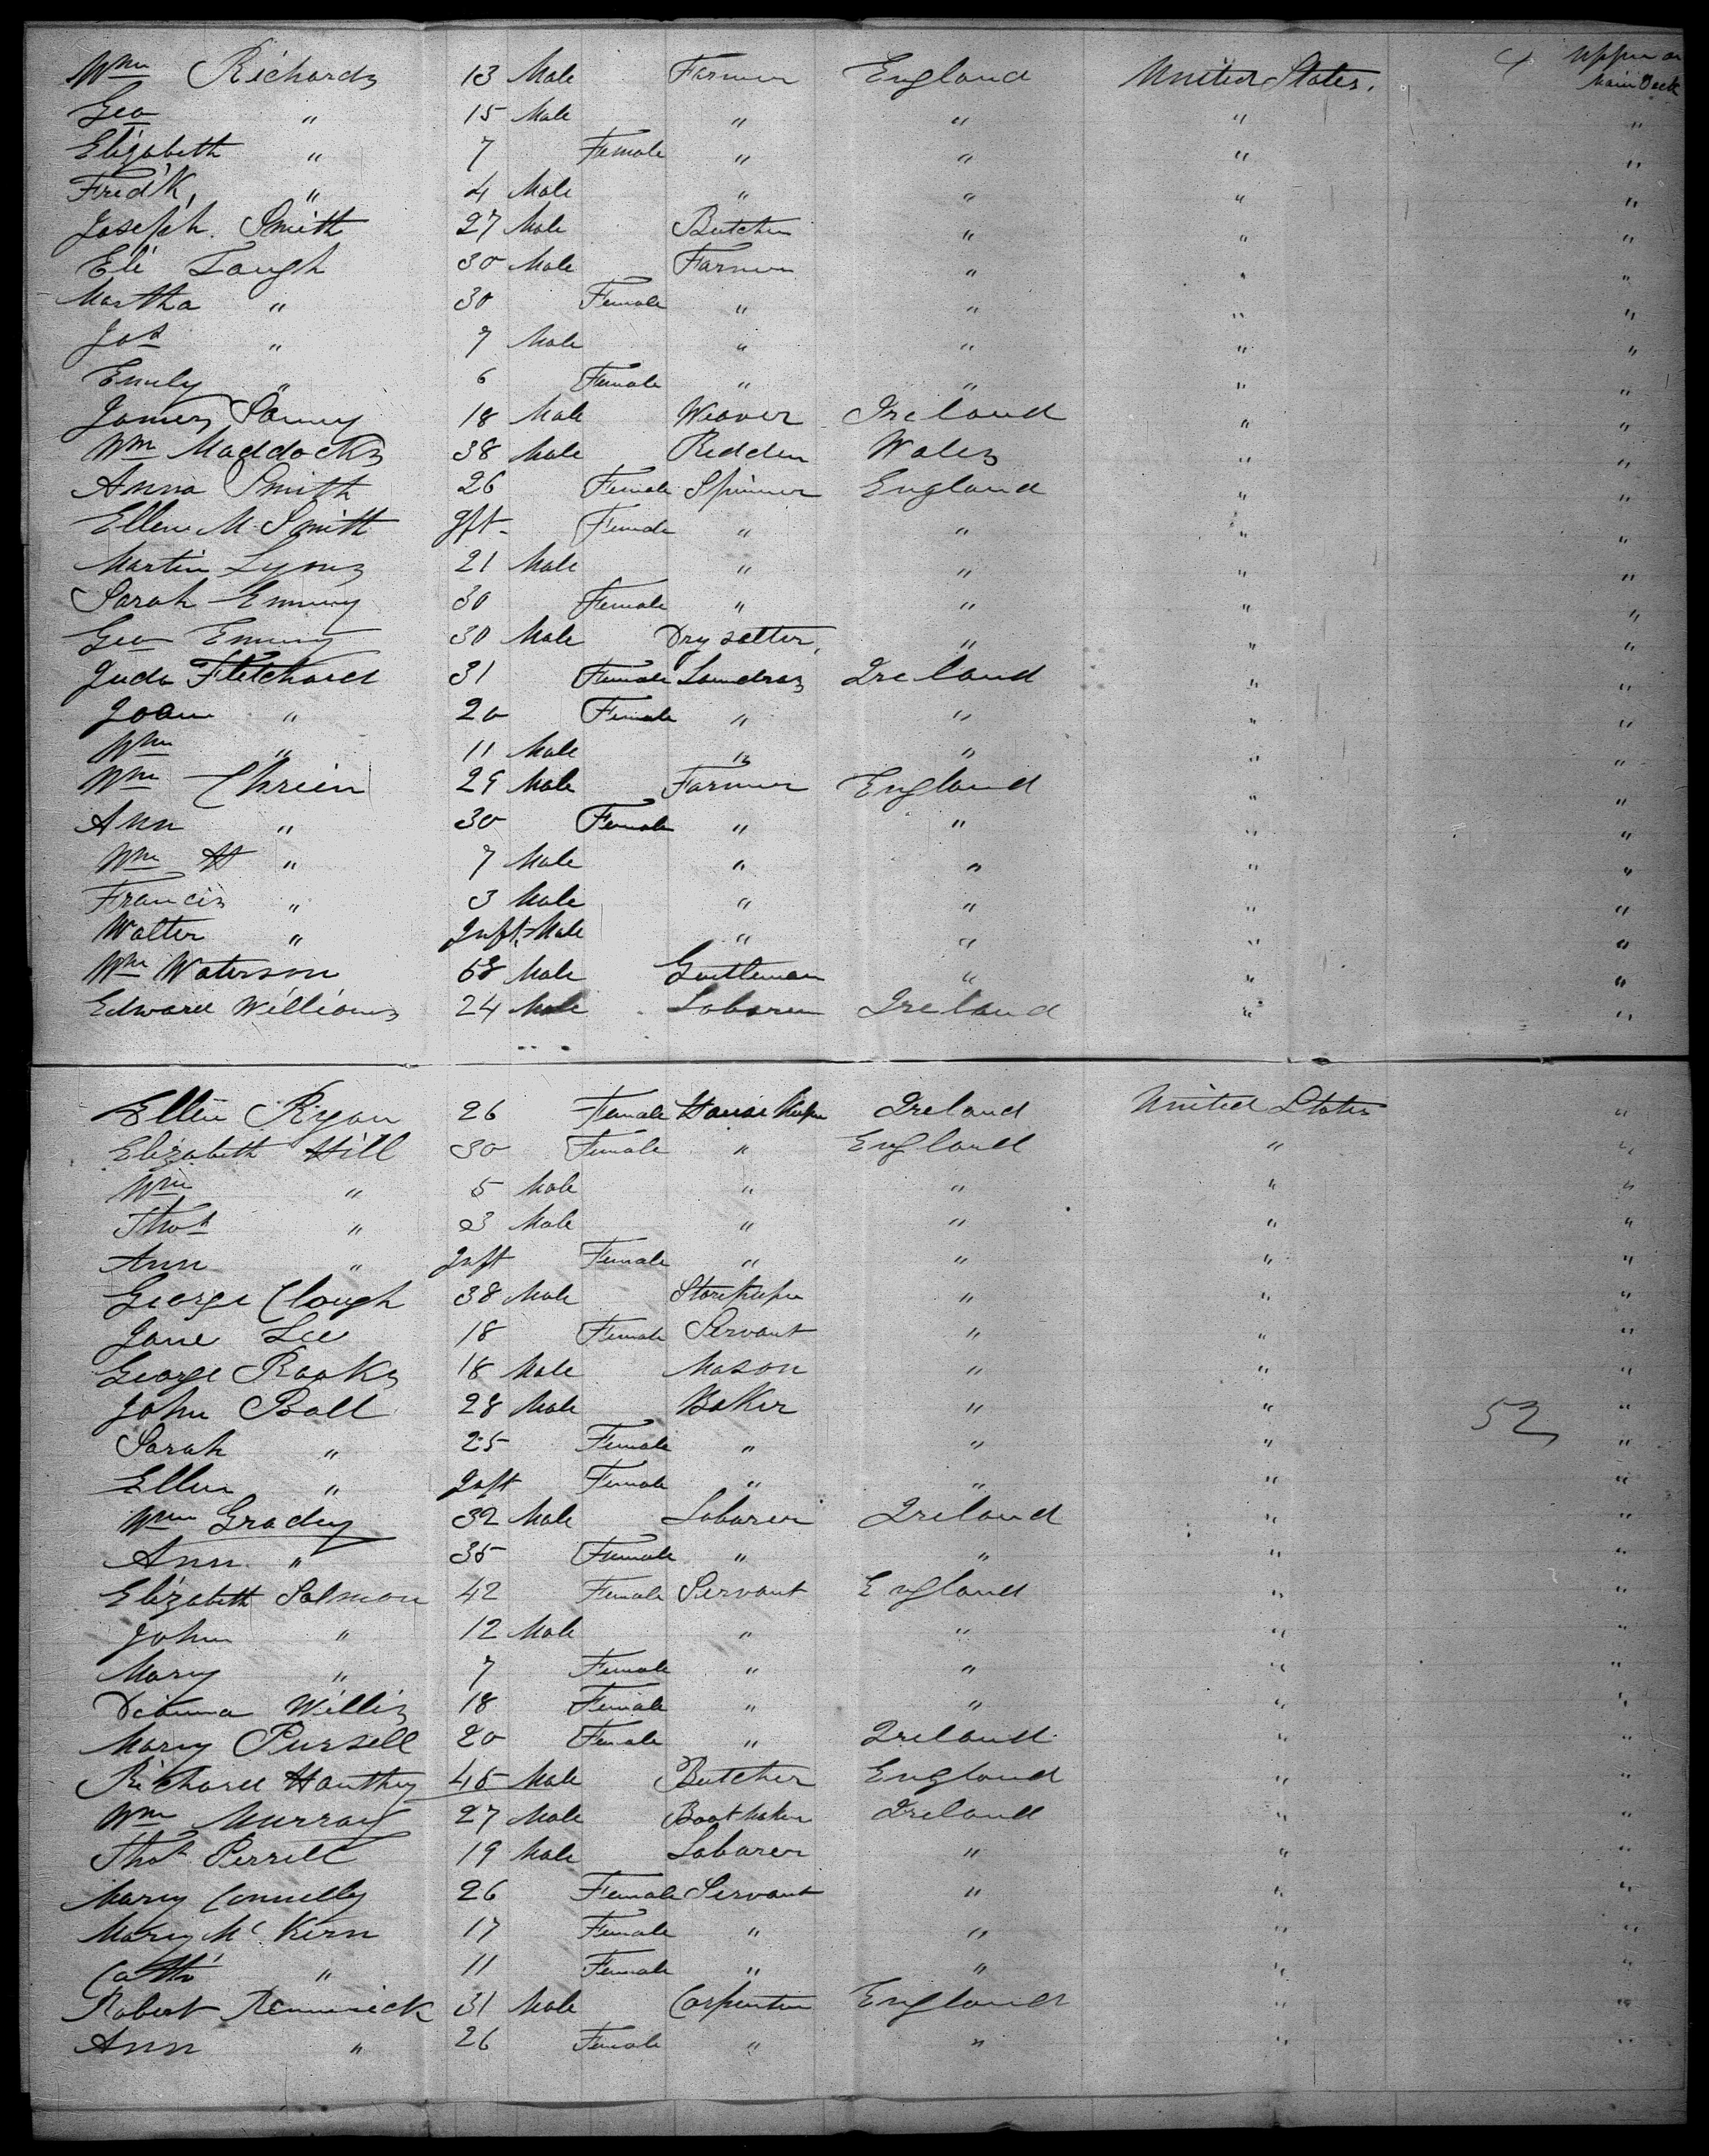 Wm Richards 13 Male Farmer England United States. 4 Upper or Main Deck
Geo " 15 Male " " " "
Elizabeth " 7 Female " " " "
Fred'k " 4 Male " " " "
Joseph Smith 27 Male Butcher " " "
Eli Taugh 30 Male Farmer " " "
Martha " 30 Female " " " "
Jos " 7 Male " " " "
Emily " 6 Female " " " "
James 18 Male Weaver Ireland " "
Wm Maddocks 38 Male Wales " "
Anna Smith 26 Female Spinner England " "
Ellen M. Smith Female " " " "
Martin Lyons 21 Male " " " "
Sarah Emmery 30 Female " " " "
Geo Emmery 30 Male Dry salter, " " "
Juda 31 Female Laundras Ireland " "
Joan " 20 Female " " " "
Wm " 11 Male " " " "
Wm 29 Male Farmer England " "
Ann " 30 Female " " " "
Wm H " 7 Male " " " "
Francis " 3 Male " " " "
Walter " Inft. Male " " " "
Wm Waterson 68 Male Gentleman " " "
Edward Williams 24 Male Laborer Ireland " "
Ellen Ryan 26 Female House Keeper Ireland United States "
Elizabeth Hill 30 Female " England " "
Wm " 5 Male " " " "
Thos " 3 Male " " " "
Ann " Inft Female " " " "
George Clough 38 Male Storekeeper " " "
Jane Lee 18 Female Servant " " "
George Rooks 18 Male Mason " " "
John Ball 28 Male Baker " " 52 "
Sarah " 25 Female " " " "
Ellen " Inft Female " " " "
Wm Grady 32 Male Laborer Ireland " "
Ann " 35 Female " " " "
Elizabeth Salmon 42 Female Servant England " "
John " 12 Male " " " "
Mary " 7 Female " " " "
Willis 18 Female " " " "
Mary Pursell 20 Female " Ireland " "
Richard Hanthey 45 Male Butcher England " "
Wm Murray 27 Male Bootmaker Ireland " "
Thos Perrell 19 Male Laborer " " "
Mary Connelly 26 Female Servant " " "
Mary Mc Kern 17 Female " " " "
Cath " 11 Female " " " "
Robert Rennwick 31 Male Carpenter England " "
Ann " 26 Female " " " "